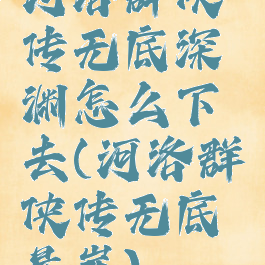 河洛群侠
传无底深
渊怎么下
去(河洛群
侠传无底
悬崖)